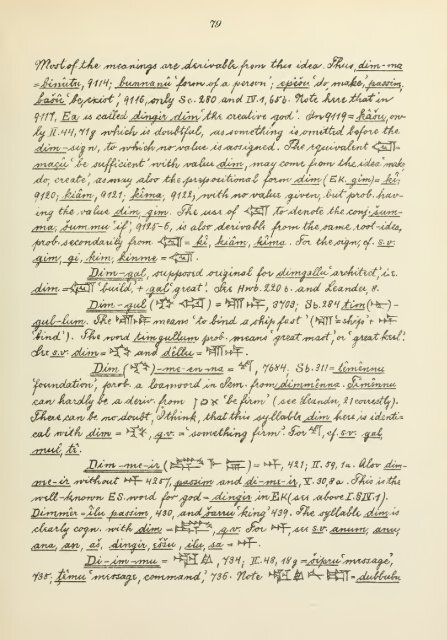 79
Most of the meanings are derivable from this idea. Thus, dim-ma
= binûtu, 9114; bunnanû 'form of a person'; epêšu 'do, make', passim,
bašû 'be, exist', 9116, only Sc. 280 and IV. 1, 65 b. Note here that in
9117, Ea is called dingir dim 'the creative god'. In 9119 = kâšu, on-
ly II. 44, 71 g which is doubtful, as something is omitted before the
dim-sign, to which no value is assigned. The equivalent
maçû 'be sufficient' with value dim, may come from the idea 'make
do, create', as may also the prepositional form dim (EK. gim) = kî,
9120, kiâm, 9121; kîma, 9122, with no value given, but prob. hav-
ing the value dim, gim. The use of to denote the conj. šum-
ma, šummu 'if', 9125-6, is also derivable from the same root-idea,
prob. secondarily from = kî, kiâm, kîma. For the sign, cf. s.v.
gim, gi, kim, kinme =
Dim-gal, supposed original for dimgallu 'architect', i.e.
dim = 'build', + gal 'great'. See Hwb. 220 b. and Leander, 8.
Dim-gul ( ) = , 3703; Sb. 284 tim ( )-
gul-lum. The means 'to bind a ship fast' ( = 'ship' +
'bind'). The word timgullum prob. means 'great mast', or 'great keel'.
See s.v. dim = and dellu =
Dim ( )-me-en-na = , 7684. Sb. 311 = têmênnu
'foundation', prob. a loanword in Sem. from dimmênna. Têmênnu
can hardly be a deriv. from 'be firm' (see Leander, 21 correctly).
There can be no doubt, I think, that this syllable dim here is identi-
cal with dim = , q.v. = 'something firm'. For , cf. s.v. gal,
mul, tê.
Dim-me-ir ( ) = , 421; II. 59, 1a. Also dim-
me-ir without 4257, passim and di-me-ir, V. 30, 8a. This is the
well-known ES. word for god = dingir in EK (see above I. § IV. 1).
Dimmêr = ilu passim, 430, and šarru 'king' 439. The syllable dim is
clearly cogn. with dim = , q.v. For , see s.v. anum, anu,
ana, an, dingir, eššu, ilu, sa =
Di-im-mu = , 734; II. 48, 18 g = šipru 'message',
735; têmu 'message, command', 736. Note = dubbubu